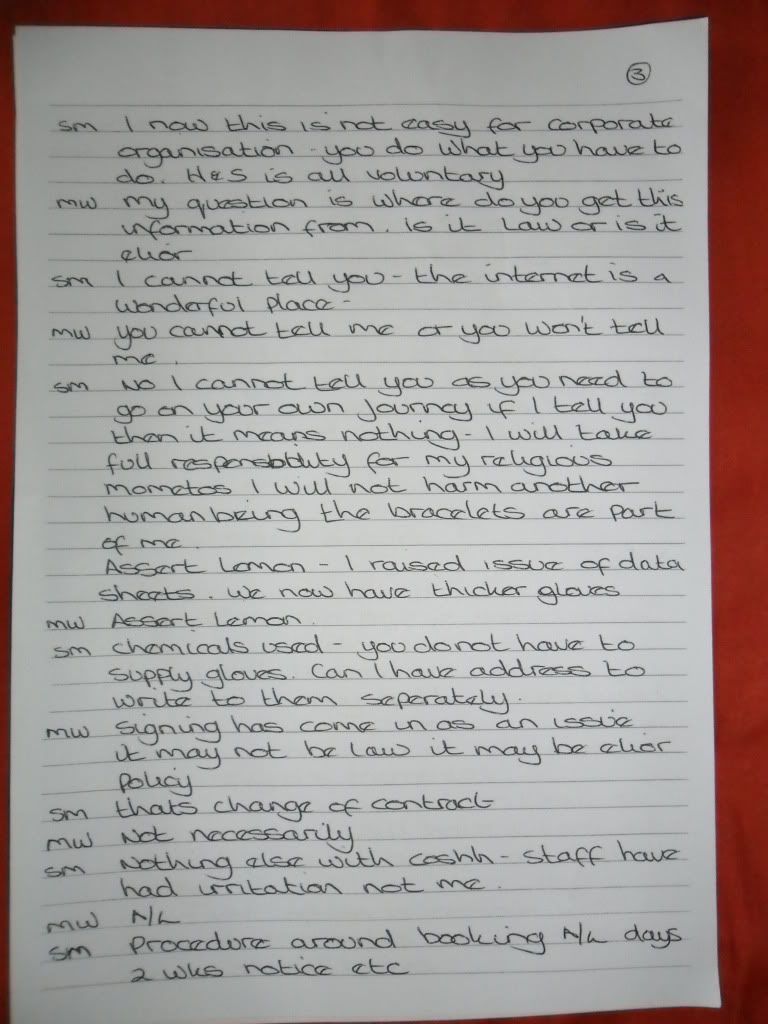 3
SM I now this is not easy for corporate
organisation - you do what you have to
do. H&S is all voluntary
MW my question is where do you get this
information from. Is it Law or is it
elior
SM I cannot tell you - the internet is a
wonderful place -
MW you cannot tell me or you won't tell
me.
SM No I cannot tell you as you need to
go on your own Journey if I tell you
then it means nothing - I will take
full responsibility for my religious
mometos I will not harm another
human being the bracelets are part
of me.
Assert Lemon - I raised issue of data
sheets. We now have thicker gloves
MW Assert Lemon.
SM chemicals used - you do not have to
supply gloves. Can I have address to
write to them seperately.
MW Signing has come in as an issue
it may not be law it may be elior
policy
SM thats change of contract
MW Not necessarily
SM Nothing else with coshh - staff have
had irritation not me.
MW A/L
SM Procedure around booking A/L days
2 wks notice etc